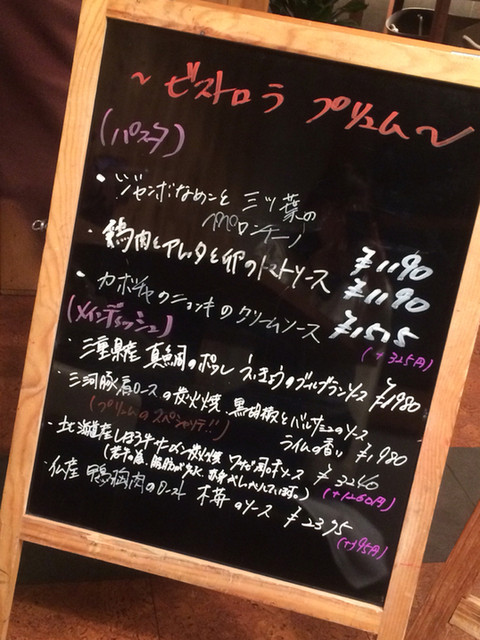 ～ビストロ ラ プリュム～
(パスタ)
・ジャンボなめこと 三ツ葉の
ペペロンチーノ ¥1190
・鶏肉とアンチョビと卵のトマトソース ¥1190
・カボチャのニョッキのクリームソース ¥1515
(+325円)
(メインディッシュ)
・三重県産 真鯛のポワレ のブールブランソース ¥1980
・三河豚肩ロースの炭火焼 黒胡椒とバルサミコのソース
(プリュムのスペシャリテ!!) ライムの香り ¥1980
・北海道産 炭火焼 ワサビ風味ソース ¥3240
(+1260円)
・仏産 鴨胸肉のロースト 木苺のソース ¥2395
(+495円)